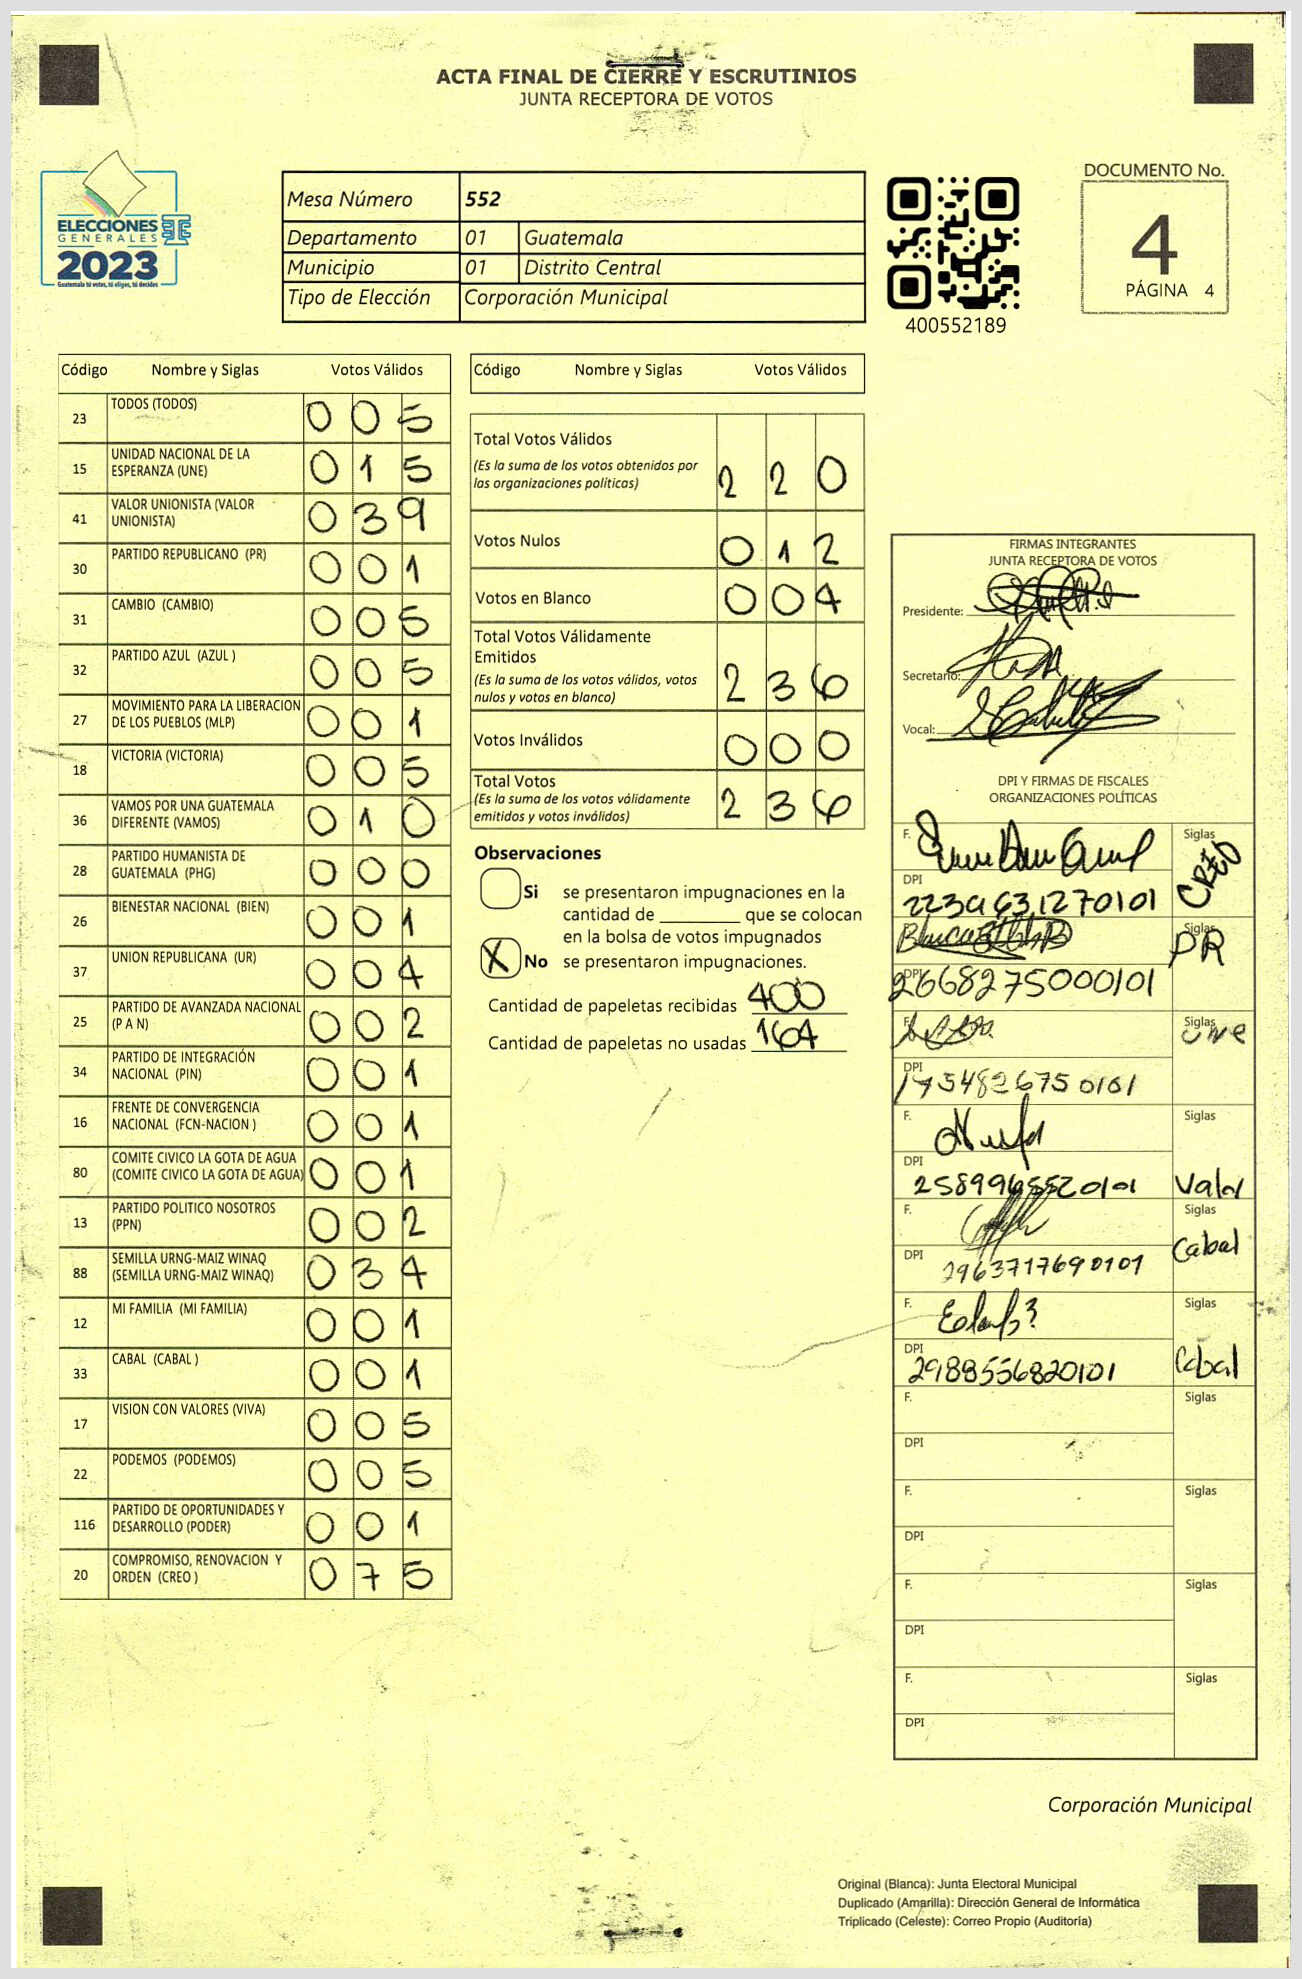 ACTA FINAL DE CIERRE Y ESCRUTINIOS
JUNTA RECEPTORA DE VOTOS
ELECCIONES
GENERALES
2023
Guatemala tú votes, tú eliges, tú decides
Mesa Número 552
Departamento 01 Guatemala
Municipio 01 Distrito Central
Tipo de Elección Corporación Municipal
400552189
DOCUMENTO No.
4
PÁGINA 4
Código Nombre y Siglas Votos Válidos
23 TODOS (TODOS) 0 0 5
15 UNIDAD NACIONAL DE LA
ESPERANZA (UNE) 0 1 5
41 VALOR UNIONISTA (VALOR
UNIONISTA) 0 3 9
30 PARTIDO REPUBLICANO (PR) 0 0 1
31 CAMBIO (CAMBIO) 0 0 5
32 PARTIDO AZUL (AZUL ) 0 0 5
27 MOVIMIENTO PARA LA LIBERACION
DE LOS PUEBLOS (MLP) 0 0 1
18 VICTORIA (VICTORIA) 0 0 5
36 VAMOS POR UNA GUATEMALA
DIFERENTE (VAMOS) 0 1 0
28 PARTIDO HUMANISTA DE
GUATEMALA (PHG) 0 0 0
26 BIENESTAR NACIONAL (BIEN) 0 0 1
37 UNION REPUBLICANA (UR) 0 0 4
25 PARTIDO DE AVANZADA NACIONAL
(P A N) 0 0 2
34 PARTIDO DE INTEGRACIÓN
NACIONAL (PIN) 0 0 1
16 FRENTE DE CONVERGENCIA
NACIONAL (FCN-NACION ) 0 0 1
80 COMITE CIVICO LA GOTA DE AGUA
(COMITE CIVICO LA GOTA DE AGUA) 0 0 1
13 PARTIDO POLITICO NOSOTROS
(PPN) 0 0 2
88 SEMILLA URNG-MAIZ WINAQ
(SEMILLA URNG-MAIZ WINAQ) 0 3 4
12 MI FAMILIA (MI FAMILIA) 0 0 1
33 CABAL (CABAL ) 0 0 1
17 VISION CON VALORES (VIVA) 0 0 5
22 PODEMOS (PODEMOS) 0 0 5
116 PARTIDO DE OPORTUNIDADES Y
DESARROLLO (PODER) 0 0 1
20 COMPROMISO, RENOVACION Y
ORDEN (CREO ) 0 7 5
Código Nombre y Siglas Votos Válidos
Total Votos Válidos
(Es la suma de los votos obtenidos por
las organizaciones políticas) 2 2 0
Votos Nulos 0 1 2
Votos en Blanco 0 0 4
Total Votos Válidamente
Emitidos
(Es la suma de los votos válidos, votos
nulos y votos en blanco) 2 3 6
Votos Inválidos 0 0 0
Total Votos
(Es la suma de los votos válidamente
emitidos y votos inválidos) 2 3 6
Observaciones
Si se presentaron impugnaciones en la
cantidad de ________ que se colocan
en la bolsa de votos impugnados
X No se presentaron impugnaciones.
Cantidad de papeletas recibidas 400
Cantidad de papeletas no usadas 164
FIRMAS INTEGRANTES
JUNTA RECEPTORA DE VOTOS
Presidente:
Secretario:
Vocal:
DPI Y FIRMAS DE FISCALES
ORGANIZACIONES POLÍTICAS
F. Siglas CREO
DPI
2239631270101
Siglas PR
DPI 2668275000101
F. Siglas une
DPI
1754826750101
F. Siglas
DPI
2589965520101 Valor
F. Siglas
Cabal
DPI 2963717690101
F. Siglas
DPI Cabal
2988556820101
F. Siglas
DPI
F. Siglas
DPI
F. Siglas
DPI
F. Siglas
DPI
Corporación Municipal
Original (Blanca): Junta Electoral Municipal
Duplicado (Amarilla): Dirección General de Informática
Triplicado (Celeste): Correo Propio (Auditoría)